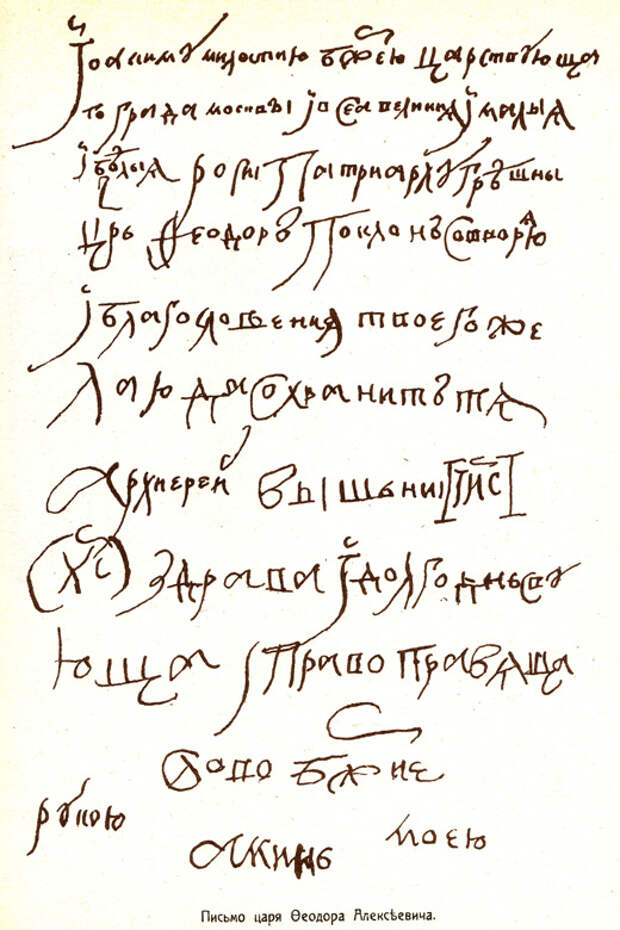 Іоакиму милостию бжею царствующа
го града москвы и всеа великия и малыя
и белыя росиі патриарху грѣшны
црь Ѳеодоръ поклонъ сотворяю
и благословения твоего же
лаю да сохранитъ тя
архиереи вышьни ІИС
(ХС) здрава и долгоденьсву
юща и право правяща
Слово бжие
рукою моею
аминь
Письмо царя Ѳеодора Алексѣевича.